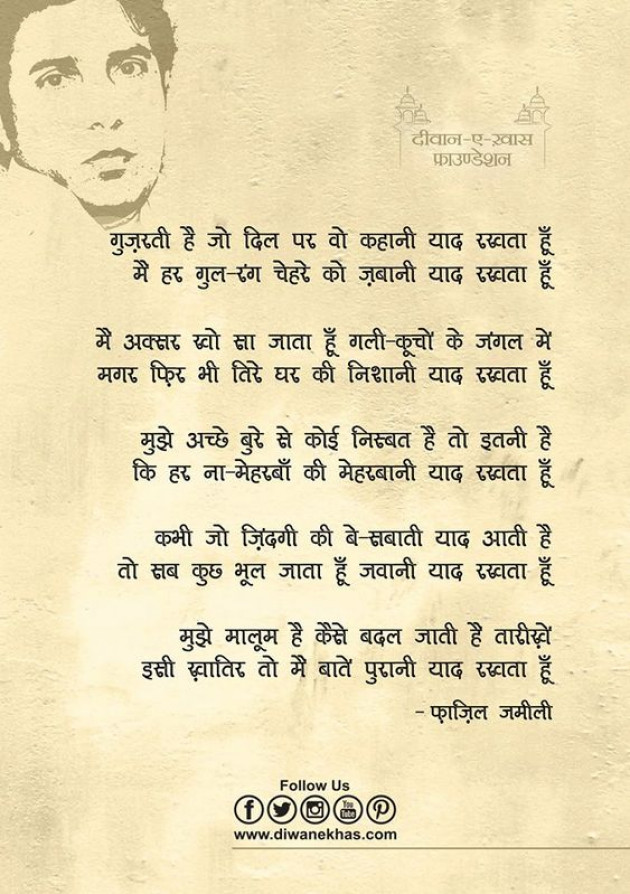 दीवान-ए-ख़ास
फ़ाउण्डेशन
गुज़रती है जो दिल पर वो कहानी याद रखता हूँ
मैं हर गुल-रंग चेहरे को ज़बानी याद रखता हूँ
मैं अक्सर खो सा जाता हूँ गली-कूचों के जंगल में
मगर फ़िर भी तिरे घर की निशानी याद रखता हूँ
मुझे अच्छे बुरे से कोई निस्बत है तो इतनी है
कि हर ना-मेहरबाँ की मेहरबानी याद रखता हूँ
कभी जो ज़िंदगी की बे-सबाती याद आती है
तो सब कुछ भूल जाता हूँ जवानी याद रखता हूँ
मुझे मालूम है कैसे बदल जाती हैं तारीख़ें
इसी ख़ातिर तो मैं बातें पुरानी याद रखता हूँ
- फ़ाज़िल जमीली
Follow Us
You Tube
www.diwanekhas.com